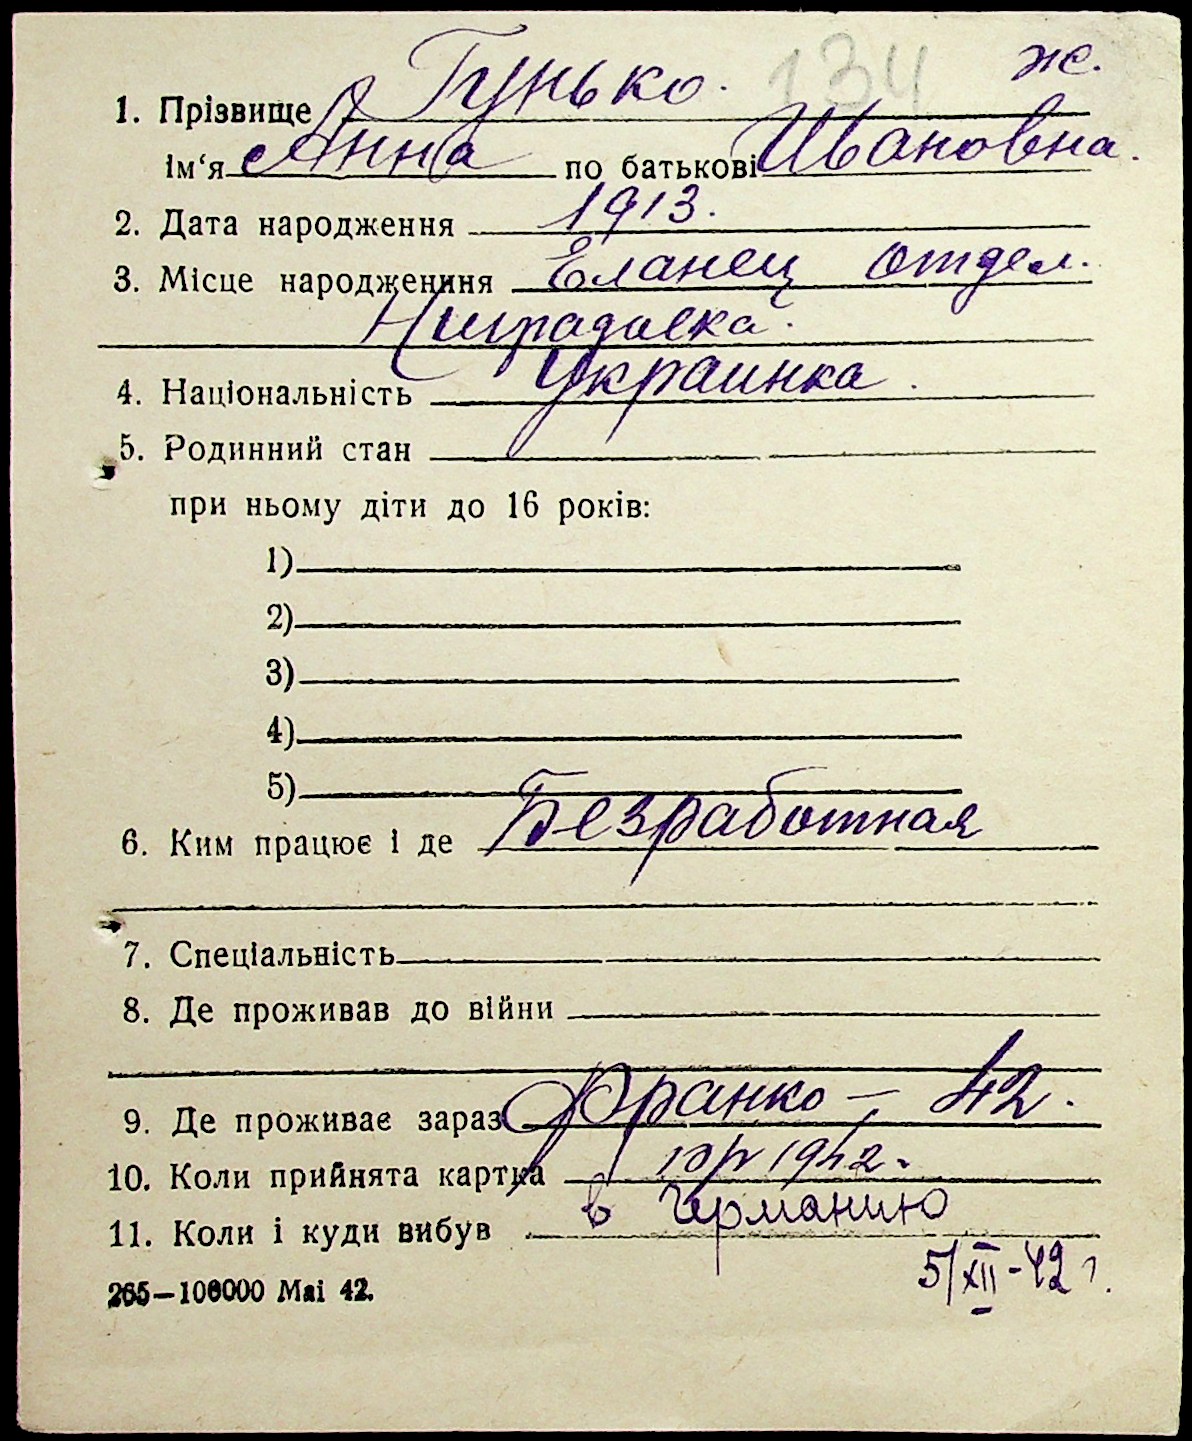 134 ж.
1. Прізвище Гунько.
ім'я Анна по батькові Ивановна.
2. Дата народження 1913.
3. Місце народженння Еланец отдел.
4. Національність Украинка.
5. Родинний стан
при ньому діти до 16 років:
1)
2)
3)
4)
5)
6. Ким працює і де Безработная
7. Спеціальність
8. Де проживав до війни
9. Де проживає зараз Франко – 42.
10. Коли прийнята картка 1942.
11. Коли і куди вибув в Германию
5/XII-42 г.
265—100000 Mai 42.